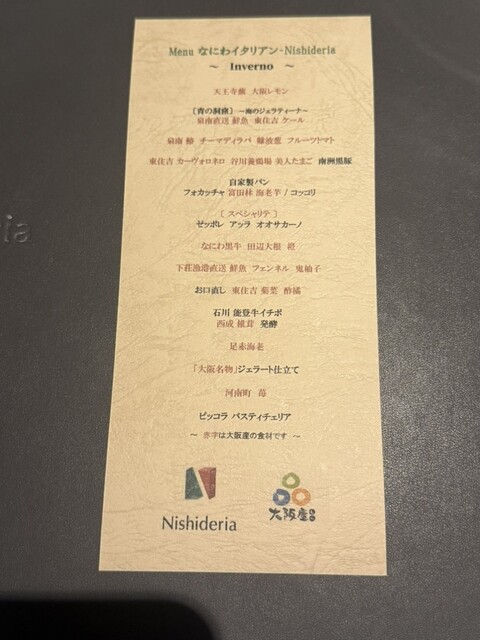 Menu なにわイタリアン-Nishideria
～ Inverno ～
天王寺蕪 大阪レモン
［青の洞窟］～海のジェラティーナ～
泉南直送 鮮魚 東住吉 ケール
泉南 鯵 チーマディラパ 難波葱 フルーツトマト
東住吉 カーヴォロネロ 谷川養鶏場 美人たまご 南洲黒豚
自家製パン
フォカッチャ 富田林 海老芋 / コッコリ
［ スペシャリテ ］
ゼッポレ アッラ オオサカーノ
なにわ黒牛 田辺大根
下荘漁港直送 鮮魚 フェンネル 鬼柚子
お口直し 東住吉 菊菜 酢橘
石川 能登牛イチボ
西成 椎茸 発酵
足赤海老
「大阪名物」ジェラート仕立て
河南町 苺
ピッコラ パスティチェリア
～ 赤字は大阪産の食材です ～
Nishideria
大阪産